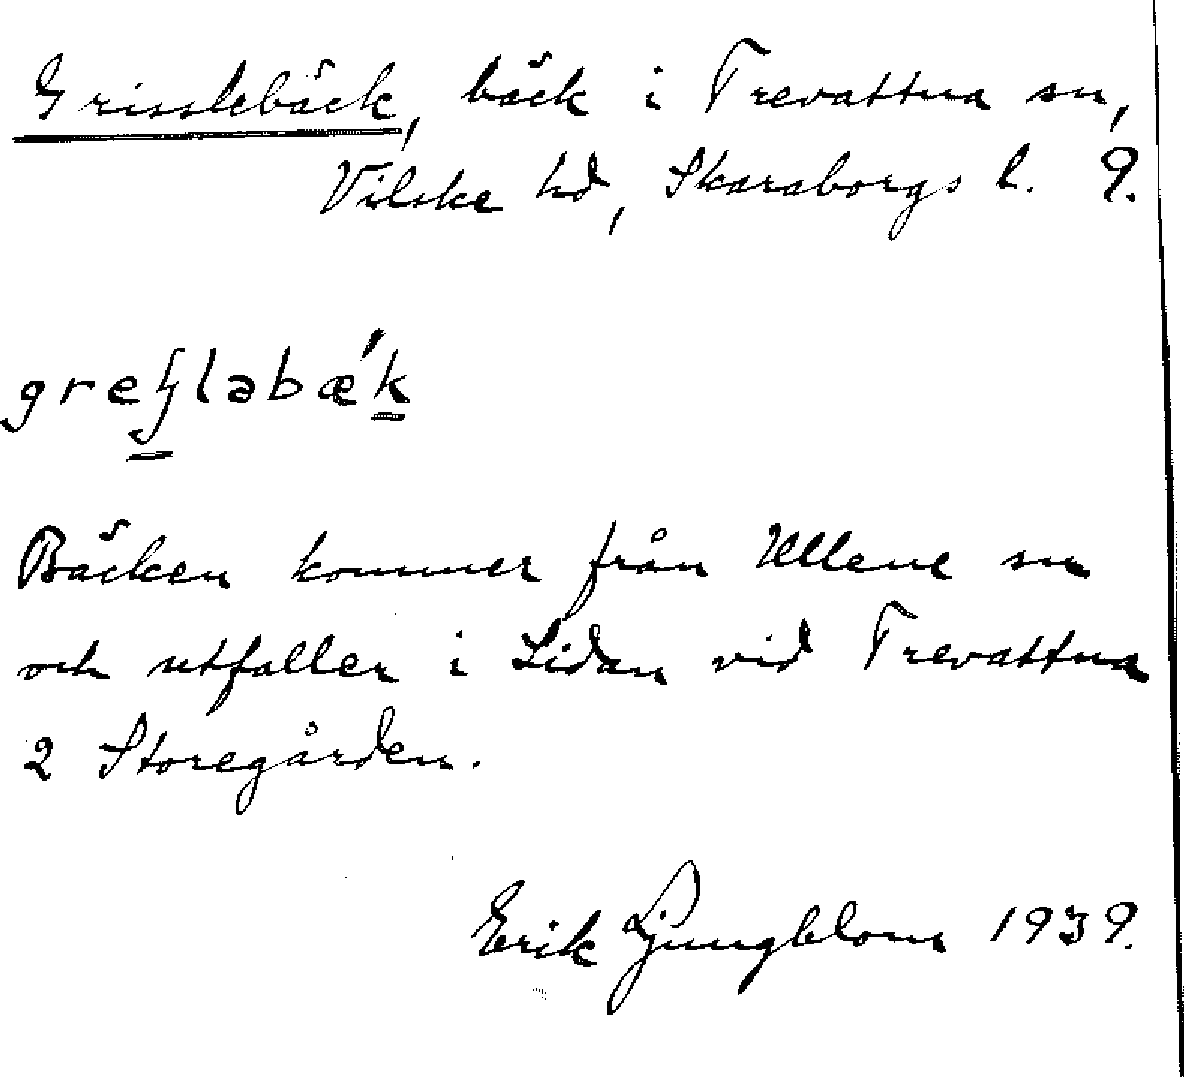 Grisslebäck, bäck i Trevattna sn,
Vilske hd, Skaraborgs l. 9.
greʃlabæ´k
Bäcken kommer från Ullene sn
och utfaller i Lidan vid Trevattna
2 Storegården.
Erik Ljungblom 1939.